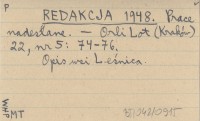 P
REDAKCJA 1948. Prace
nadesłane. — Orli Lot (Kraków)
22, nr 5: 74-76.
Opis wsi Leśnica.
MT